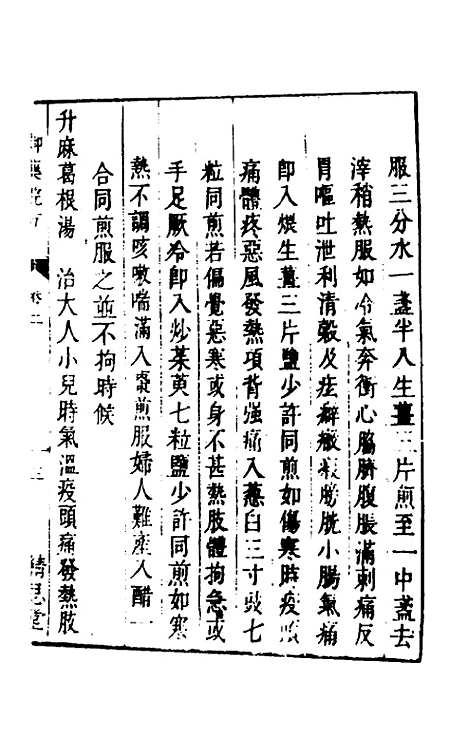 服三分水一盞半入生薑三片煎至一中盞去
滓稍熱服如冷氣奔衝心脇臍腹脹滿刺痛反
胃嘔吐泄利清穀及痃癖癥瘕膀胱小腸氣痛
即入煨生薑三片鹽少許同煎如傷寒時疫頭
痛體疼惡風發熱項背強痛入蔥白三寸豉七
粒同煎若傷覺惡寒或身不甚熱肢體拘急或
手足厥冷即入炒茱萸七粒鹽少許同煎如寒
熱不調咳嗽喘滿入棗煎服婦人難產入醋一
合同煎服之並不拘時候
升麻葛根湯 治大人小兒時氣溫疫頭痛發熱肢
御藥院方 卷二 精思堂